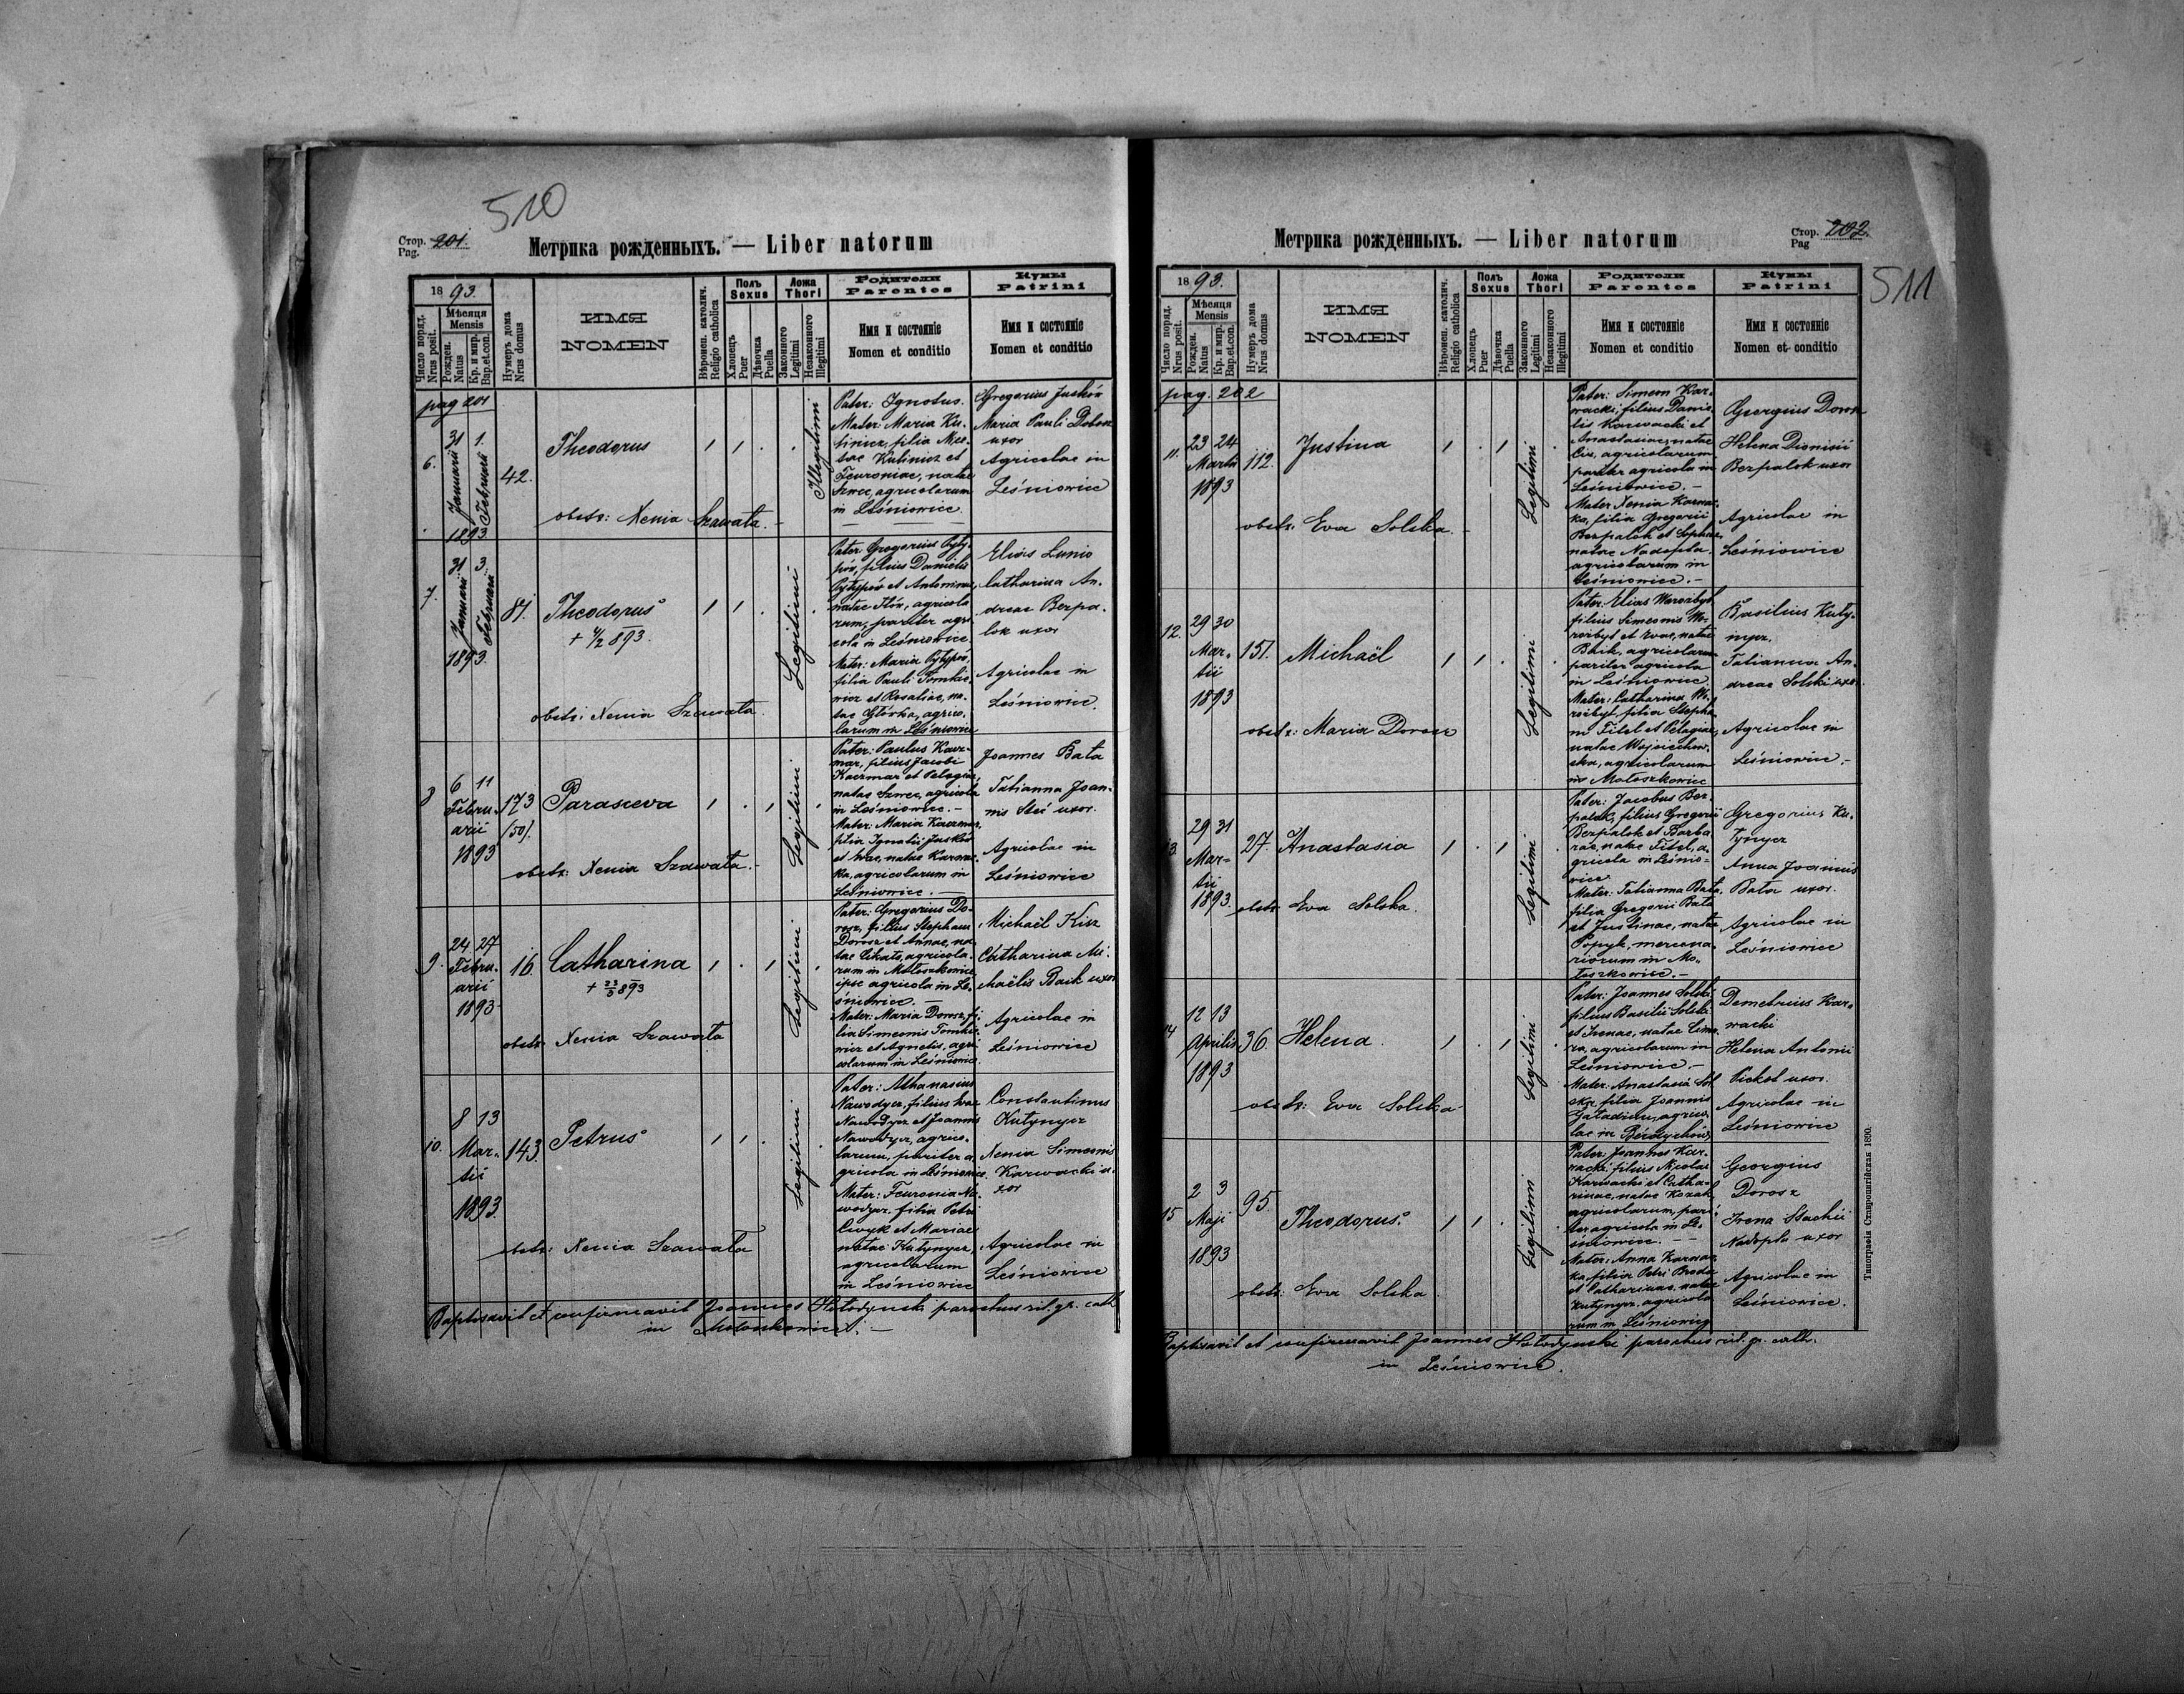 510
Стор. 201.
Pag.
Метрика рожденныхъ. — Liber natorum
1893.
Число поряд.
Nrus posit.
Мѣсяця
Mensis
Рожден.
Natus
Кр. и мир.
Bap. et con.
Нумеръ дома
Nrus domus
ИМЯ
NOMEN
Вѣроисп. католич.
Religio catholica
Полъ
Sexus
Хлопець
Puer
Дѣвочка
Puella
Ложа
Thori
Законного
Legitimi
Незаконного
Illegitimi
Родители
Parentes
Имя и состоянiе
Nomen et conditio
Кумы
Patrini
Имя и состоянiе
Nomen et conditio
pag 201
6.
31 1.
Januarii Februarii
1893
42.
Theodorus
obstr: Xenia Szawata.
Illegitimi
Pater: Ignotus.
Mater: Maria Ku-
linicz, filia Nice-
tae Kulinicz et
Feuroniae, natae
Szwec, agricolarum
in Leśniowice.
Gregorius Juśków
Maria Pauli Dobosz
uxor
Agricolae in
Leśniowice
7.
31 3
Januarii Februarii
1893
87.
Theodorus
+ 4/2 893.
obstr: Xenia Szawata.
Legitimi
Pater Gregorius Pyty-
pów, filius Danielis
Pytypów et Antoninae,
natae Flór, agricola
rum, pariter agri
cola in Leśniowice
Mater: Maria Pytypów,
filia Pauli Tomkie-
wicz et Rosaliae, na-
tae Głórka, agrico-
larum in Leśniowice
Elias Lunio
Catharina An-
dreae Bezpa-
lok uxor
Agricolae in
Leśniowice.
8
6 11
Febru-
arii
1893
173
(50).
Parasceva
obstr: Xenia Szawata.
Legitimi
Pater: Paulus Kacz-
mar, filius Jacobi
Kaczmar et Pelagiae,
natae Szwec, agricola
in Leśniowice.-
Mater: Maria Kaczmar,
filia Ignatii Juśków
et Evae, natae Karwac-
ka, agricolarum in
Leśniowice.
Joannes Bata
Tatianna Joan-
nis Steć uxor.
Agricolae in
Leśniowice
9.
24 27
Febru-
arii
1893
16
Catharina
+ 23/5 893
obstr. Xenia Szawata
Legitimi
Pater: Gregorius Do-
rosz, filius Stephani
Dorosz et Annae, na-
tae, agricola-
rum in Małoszkowice,
ipse agricola in Le-
śniowice.
Mater: Maria Dorosz, fi-
lia Simeonis Tomkie-
wicz et Agnetis, agri
colarum in Leśniowice
Michaël Kisz
Catharina Mi-
chaëlis Baik uxor
Agricolae in
Leśniowice
10.
8 13
Mar-
tii
1893.
143.
Petrus
obstr: Xenia Szawata
Legitimi
Pater: Athanasius
Nawodycz, filius Evae
Nawodycz et Joannis
Nawodycz, agrico-
larum, pariter a-
gricola in Leśniowice.
Mater: Feuronia Na-
wodycz, filia Petri
Cwyk et Mariae
natae Kutynycz,
agricolarum
in Leśniowice
Constantinus
Kutynycz
Xenia Simeonis
Karwacki u-
xor
Agricolae in
Leśniowice
Baptisavit et confirmavit Joannes Hołodynski parochus rit. gr. cath
in Małoszkowice.
511
Стор. 202.
Pag
Метрика рожденныхъ. — Liber natorum
1893.
Число поряд.
Nrus posit.
Мѣсяця
Mensis
Рожден.
Natus
Кр. и мир.
Bap. et con.
Нумеръ дома
Nrus domus
ИМЯ
NOMEN
Вѣроисп. католич.
Religio catholica
Полъ
Sexus
Хлопець
Puer
Дѣвочка
Puella
Ложа
Thori
Законного
Legitimi
Незаконного
Illegitimi
Родители
Parentes
Имя и состоянiе
Nomen et conditio
Кумы
Patrini
Имя и состоянiе
Nomen et conditio
pag. 202
11.
23 24
Martii
1893
112.
Justina
obstr. Eva Solska.
Legitimi
Pater: Simeon Kar-
wacki, filius Danie-
lis Karwacki et
Anastasiae, natae
agricolarum
pariter agricola in
Leśniowice.-
Mater Xenia Karwac-
ka, filia Gregorii
Bezpalok et Sophiae,
natae Nadopta,
agricolarum in
Leśniowice.-
Georgius
Helena Dionisii
Bezpalok uxor
Agricolae in
Leśniowice
12.
29 30
Mar-
tii
1893
151.
Michaël
obstr: Maria Dorosz
Legitimi
Pater: Elias Worozbyt
filius Simeonis Wo-
rozbyt et Evae, natae
Baik, agricolarum
pariter agricola
in Leśniowice
Mater: Catharina Wo-
rozbyt, filia Stepha-
ni Fitel et Pelagiae,
natae Wojciechow-
ska, agricolarum
in Małoszkowice
Basilius Kuty-
nycz.
Tatianna An-
dreae Solski uxor
Agricolae in
Leśniowice.-
13.
29 31
Mar-
tii
1893.
27.
Anastasia
obstr. Eva Solska.
Legitimi
Pater: Jacobus Bez-
palok, filius Gregorii
Bezpalok et Barba
rae, natae Fitel, a-
gricola in Leśnio-
wice
Mater: Tatianna Bata,
filia Gregorii Bata
et Justinae, natae
Popyk, mercena-
riorum in Ma-
łoszkowice.-
Gregorius Ku-
tynycz
Anna Joannis
Bata uxor.
Agricolae in
Leśniowice
14
12 13
Aprilis
1893
36.
Helena.
obstr: Eva Solska
Legitimi
Pater: Joannes Solski
filius Basilii Solski
et Irenae, natae
agricolarum in
Leśniowice.-
Mater: Anastasia Sol
ska, filia Joannis
agrico-
lae in
Demetrius Kar-
wacki
Helena Antonii
Pickot uxor.
Agricolae in
Leśniowice
15
2 3
Maji
1893
95.
Theodorus.
obstr: Eva Solska
Legitimi
Pater: Joannes Kar-
wacki filius Nicolai
Karwacki et Catha-
rinae, natae Kozak,
agricolarum, pari-
ter agricola in Le-
śniowice.
Mater: Anna Karwac-
ka filia Petri Broda
et Catharinae, natae
Kutynycz, agricola-
rum in Leśniowice
Georgius
Dorosz
Irena Stachii
Nadopta uxor
Agricolae in
Leśniowice.
Baptisavit et confirmavit Joannes Hołodynski parochus rit. gr. cath.
in Leśniowice.
Типографія Ставропигійская 1890.